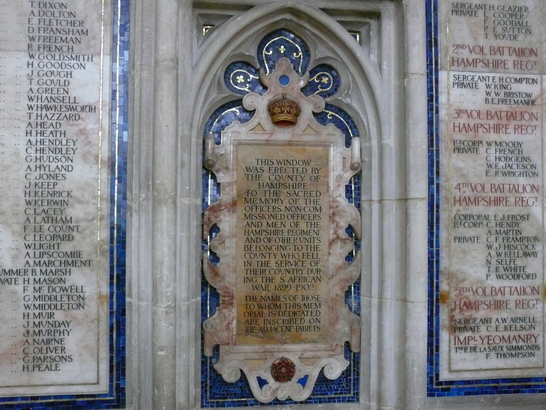 T. DIXON
E. FLETCHER
D. FRANSHAM
W. FREEMAN
R. FRENCH
W. GOLDSMITH
H. GOODSON
J. GOUGH
T. GOULD
A. GREEN
W. HANSELL
W. HAWKESWORTH
T. HAZZARD
A. HEAD
H. HEATH
A. HENDLEY
E. HENDLEY
G. HUDSON
A. HYLAND
C. JONES
J. KEEP
H. KENRICK
W. KERWIN
C. LACEY
A. LATHAM
F. LE COUNT
C. LEOPARD
W. LIGHT
A. LIPSCOMBE
A. MARCHMENT
B. MARSH
H. MASON
F. Mc DOWELL
G. MIDDLETON
W. MIDDLETON
H. MUIR
J. MUNDAY
J. MURPHY
A. NAIRNE
C. OLIVER
G. PARSONS
H. PEALE
THIS WINDOW
WAS ERECTED BY
THE COUNTY OF
HAMPSHIRE
TO THE SACRED
MEMORY OF THE
OFFICERS NON COM
MISSIONED OFFICERS
AND MEN OF THE
HAMPSHIRE REGIMENT
AND OF OTHER UNITS
BELONGING TO THE
COUNTY WHO FELL
IN THE SERVICE OF
THEIR COUNTRY DUR
ING THE S. AFRICAN
WAR 1899-1902
THE NAMES OF THOSE
TO WHOM THIS MEM
ORIAL IS DEDICATED
ARE INSCRIBED ON
THE ADJACENT TABLETS
SERGEANT H. GLAZIER
PRIVATE L. COOPER
F. GOODALL
P. E. SUTTON
T. YOUDE
2ND VOL BATTALION
HAMPSHIRE REGT
SERGEANTE H. COMPTON
PRIVATE W. KING
W. W. BRISTOW
B. E. FREEMANTLE
3RD VOL BATTALION
HAMPSHIRE REGT
W. MOODY
PRIVATE C. FRENCH
C. HODGKINS
W. E. JACKSON
E. P. WRIGHTON
4TH VOL BATTALION
HAMPSHIRE REGT
CORPORAL E. J. FROST
C. HENDY
A. MARTIN
PRIVATE C. F. FRAMPTON
W. J. HISCOCK
A. W. KELLAWAY
N. SELFE
T. R. WHITE
P. WOODFORD
5TH VOL BATTALION
HAMPSHIRE REGT
SERGEANT A. W. ARNELL
PRIVATE C. E. KELSON
IMPL YEOMANRY
R. DE LA SAUX SIMMONDS
F. THOMPSON